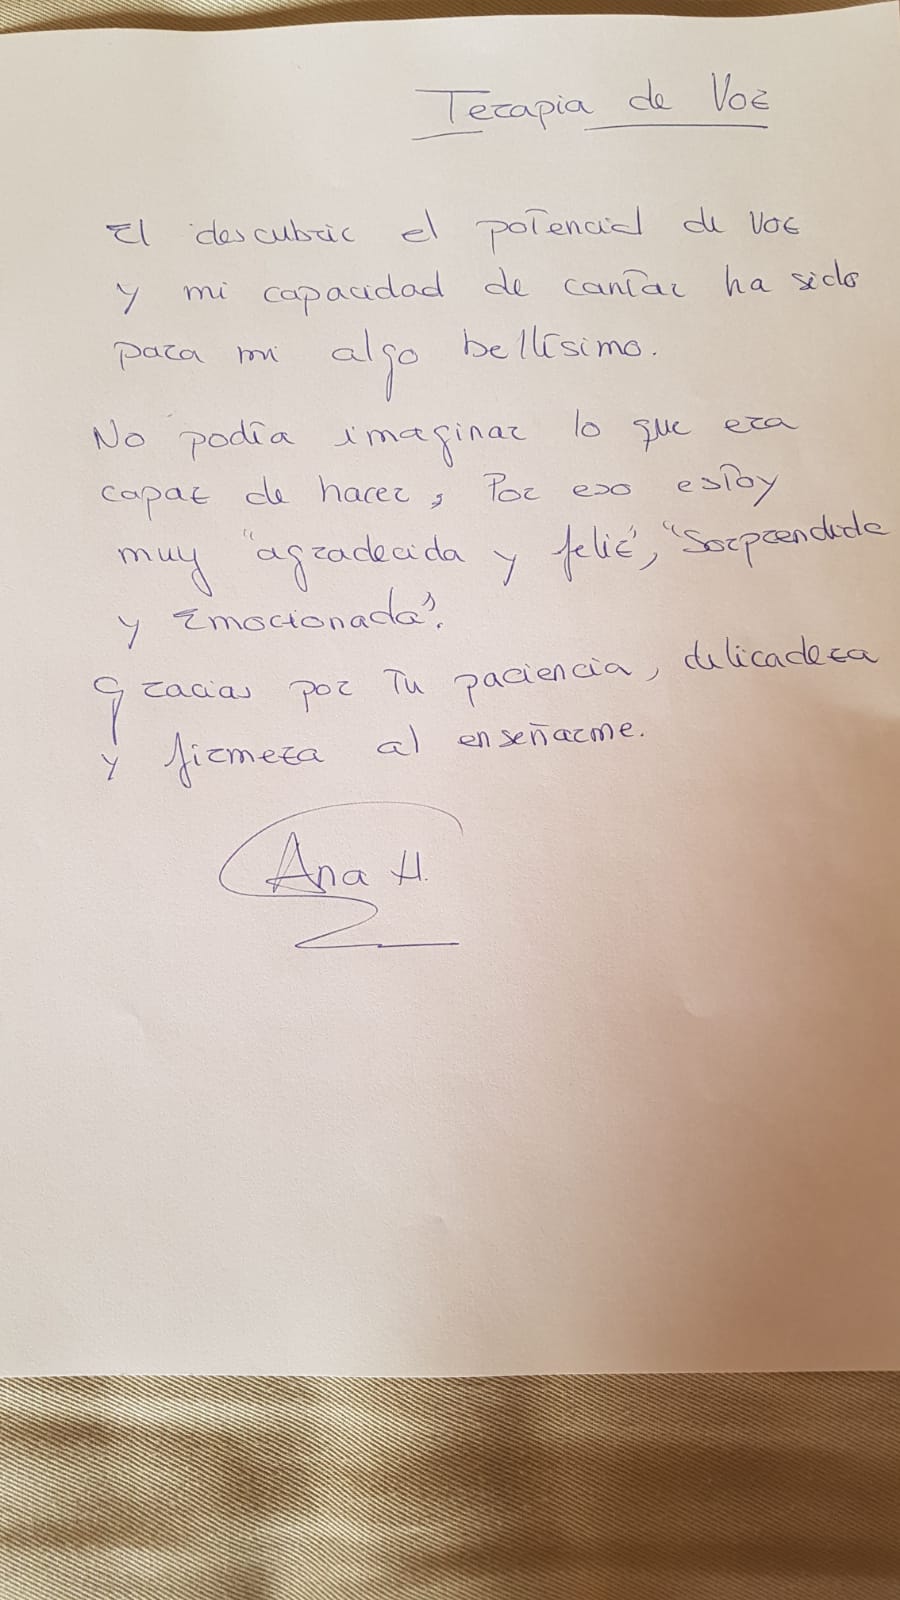 Terapia de Voz
El descubrir el potencial de voz
y mi capacidad de cantar ha sido
para mi algo bellísimo.
No podía imaginar lo que era
capaz de hacer, Por eso estoy
muy "agradecida y feliz", "Sorprendida
y Emocionada".
Gracias por Tu paciencia, delicadeza
y firmeza al enseñarme.
Ana H.